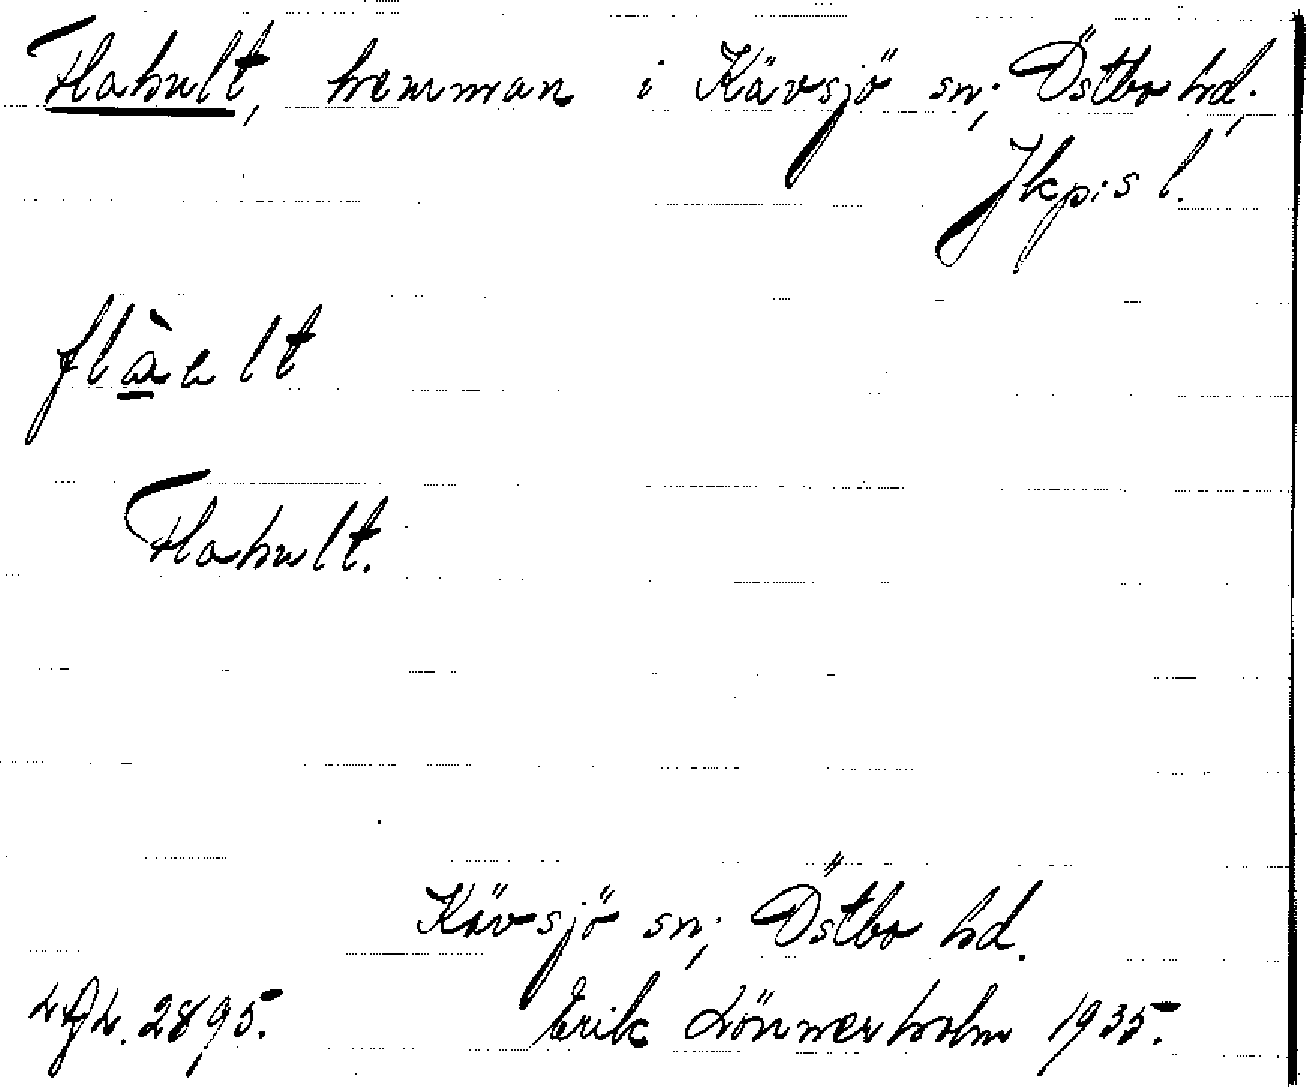 Flahult, hemman i Kävsjö sn; Östbo hd,
Jkpis l.
flàult
Flahult.
Kävsjö sn; Östbo hd.
2895. Erik Lönnerholm 1935.